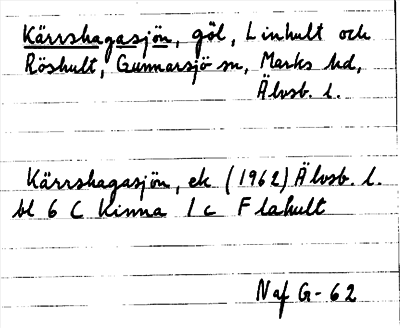 Kärrshagasjön, göl, Linhult och
Röshult, Gunnarsjö sn, Marks hd,
Älvsb. l.
Kärrshagasjön, ek (1962) Älvsb. l.
bl 6 C Kinna 1c Flahult
Naf G-62